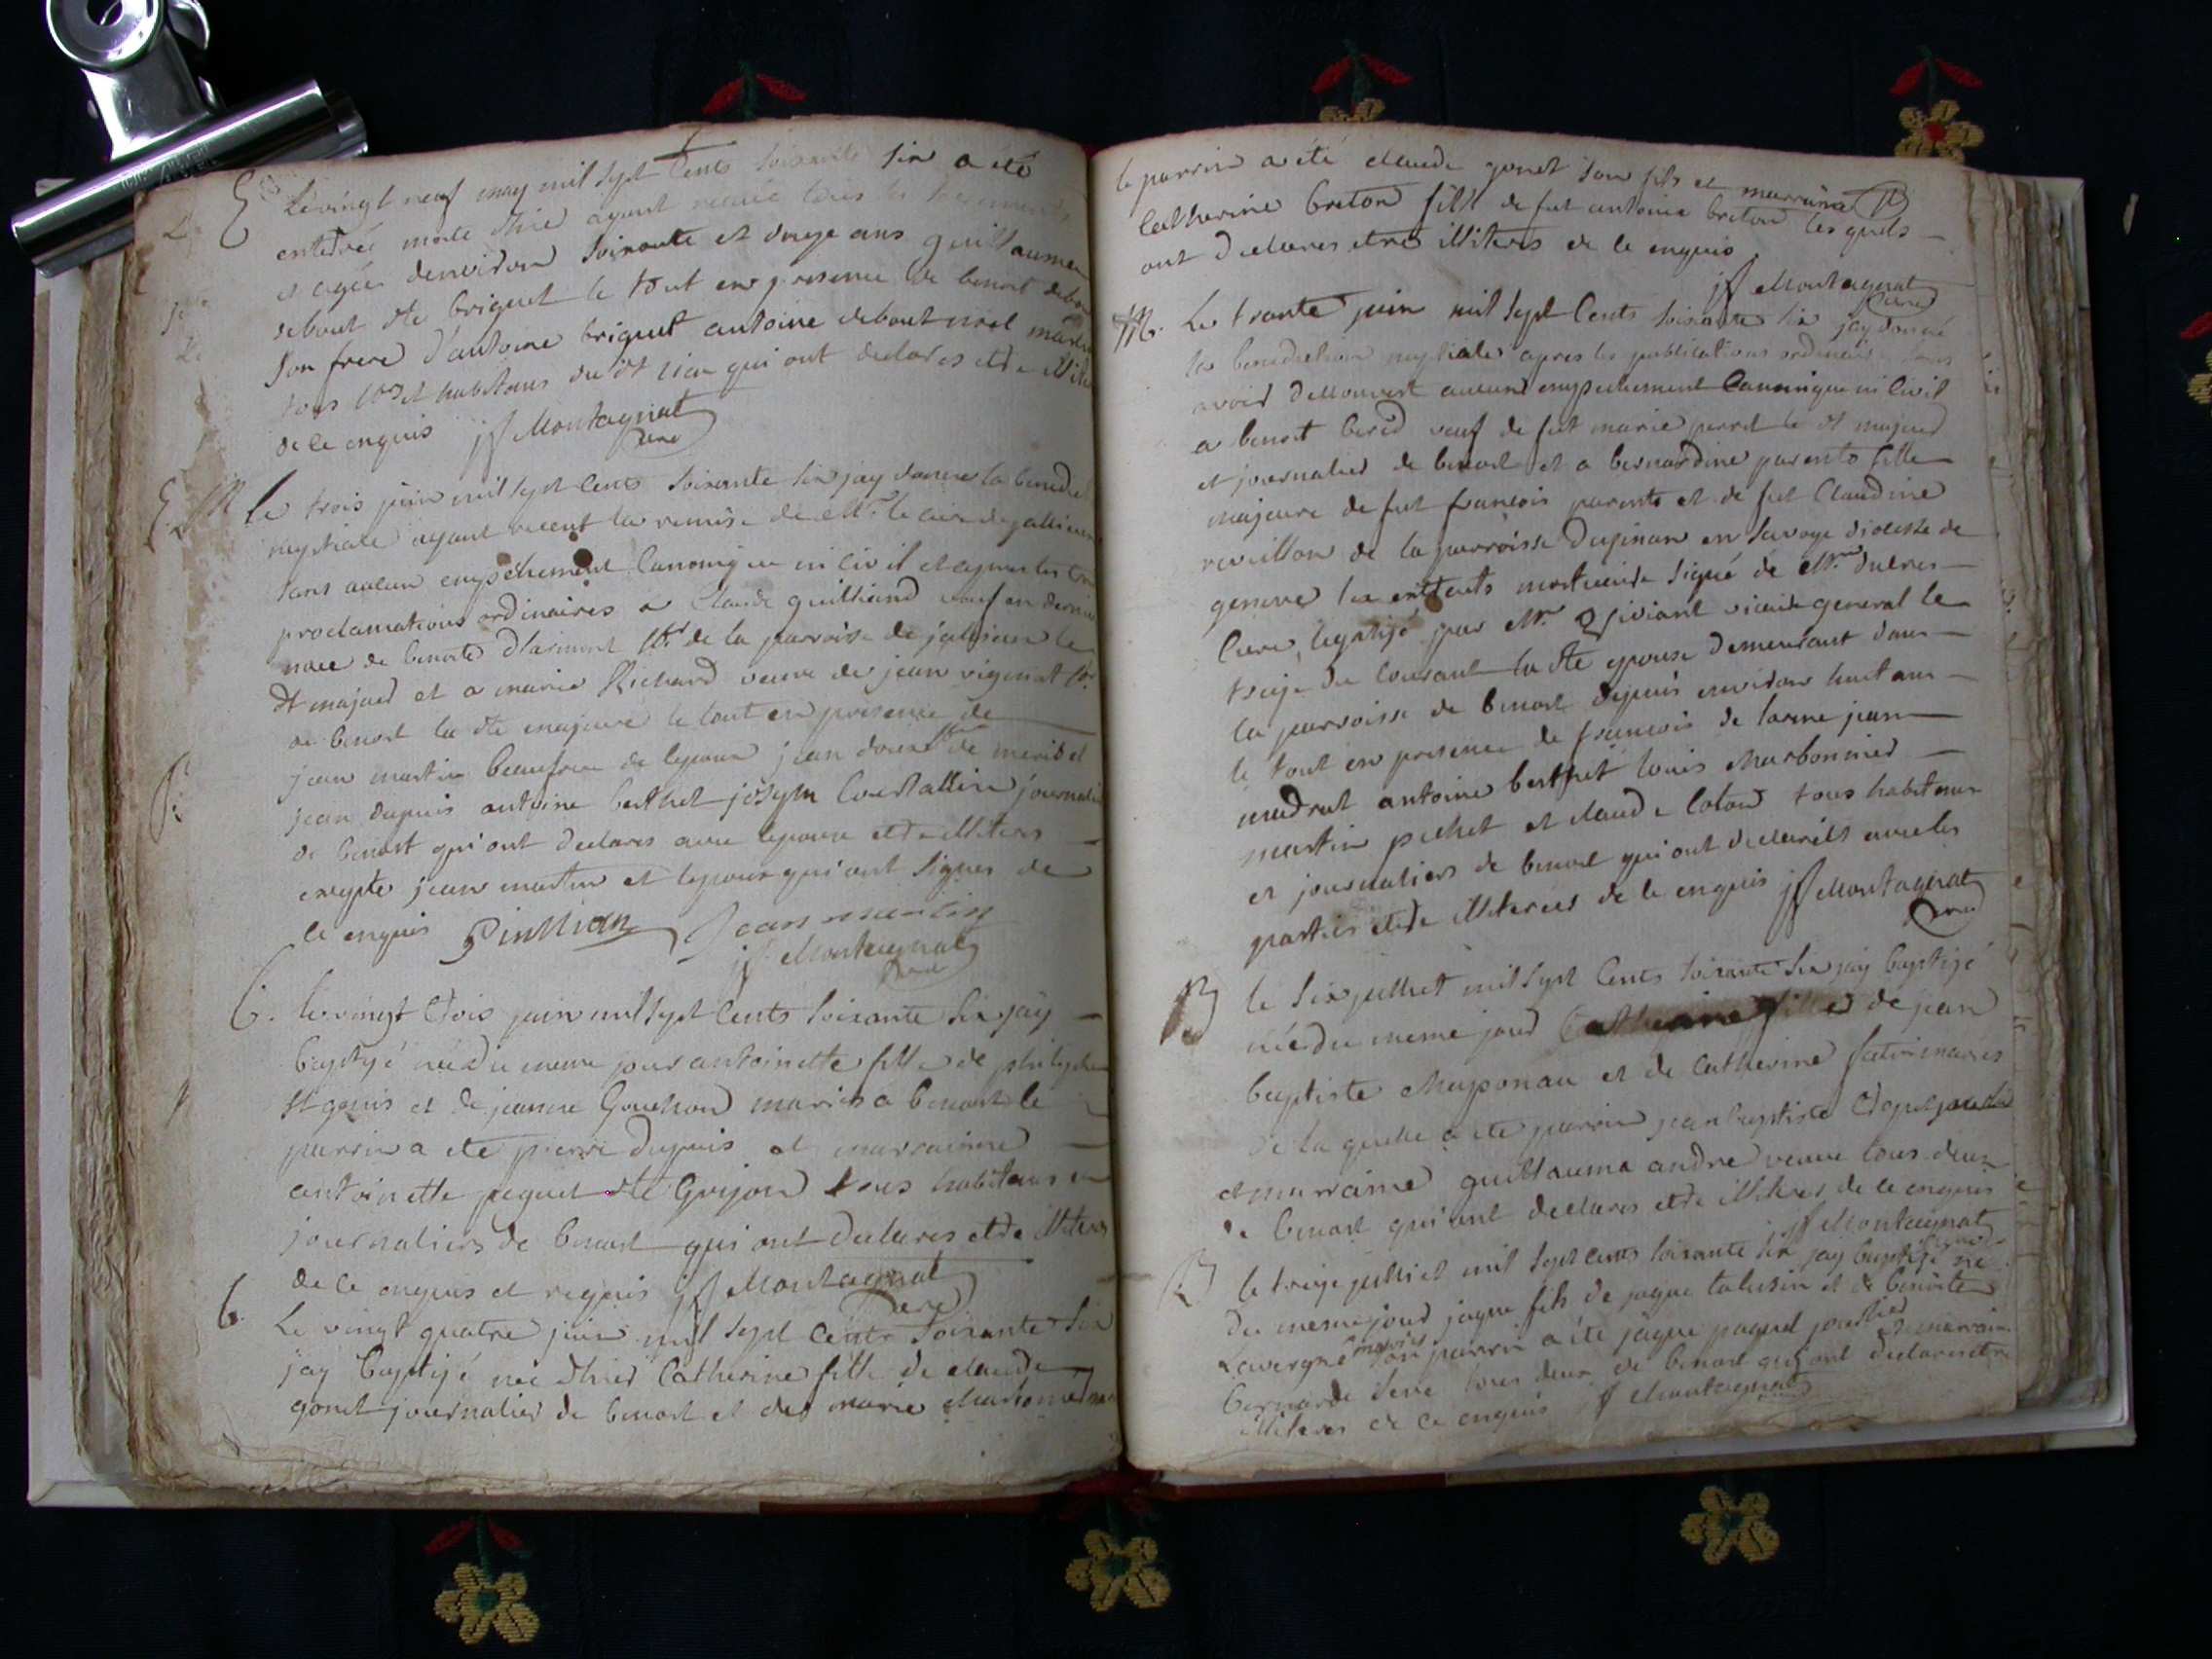 E
Le vingt neuf may mil sept cents soixante six a été
enterrée morte d'hier ayant recu tous les sacrements
et agée denviron soixante et onze ans guillauma
debout dte briquet le tout en presence de benoit debout
son frere d'antoine briquet antoine debout noel martin
tous et habitans du dt lieu qui ont declares etre
de ce enquis jf Montagnat
curé
M Le trois juin mil sept cents soixante six jay donné la bened
nuptiale ayant receut la remise de Mr le curé de
sans aucun empechement canonique ni civil et apres les trois
proclamations ordinaires a Claude guilliand veuf en dernier
de benoite de la parroisse de le
dt majeur et a marie Richard veuve de jean
de benost la dte majeure le tout en presence de
jean martin beaufrere de lepoux jean et
jean dupuis antoine berthet joseph journalier
de benost qui ont declares avec lepouse etre illiteres
excepte jean martin et lepoux qui ont signes de
ce enquis jean martin
jf Montagnat
curé
b. Le vingt trois juin mil sept cents soixante six jay
baptizé née du meme jour antoinette fille de philipe
st genis et de jeanne Gouchon mariés a benost le
parrin a ete pierre dupuis et marrainne
antoinette paquet dte Goyjon tous habitans et
journaliers de benost qui ont declares etre illiteres
de ce enquis et requis jf Montagnat
curé
b. Le vingt quatre juin mil sept cents soixante six
jay baptizé née d'hier Catherine fille de claude
gonet journalier de benost et de marie
le parrin a été claude gonet son fils et marraine
Catherine breton fille de fut antoine breton lesquels
ont declares etre illiteres de ce enquis
jf Montagnat
curé
M. Le trante juin mil sept cents soixante six jay donné
la benediction nuptiales apres les publications ordinaires sans
avoir decouvert aucun empechement canonique ni civil
a benoit veuf de fut marie perret le dt majeur
et journalier de benost et a bernardine parente fille
majeure de fut francois parente et de fut Claudine
revillon de la parroisse en savoye diocese de
geneve les signé de Mr
curé par Mr vicaire general le
treize du courant la dte epouse demeurant dans
la parroisse de benost depuis environ huit ans
le tout en presence de francois de larme jean
mudrut antoine berthet louis Charbonnier
martin pichet et claude cotton tous habitans
et journaliers de benost qui ont declarés avec les
parties etre illiterées de ce enquis jf Montagnat
curé
B le six juillet mil sept cents soixante six jay baptizé
née du meme jour Catherine fille de jean
baptiste Chaponau et de Catherine mariés
de la quelle a ete parrin jean baptiste
et marraine guillauma andre veuve tous deux
de benost qui ont declares etre illiteres de ce enquis
jf Montagnat
curé
B le treize juilliet mil sept cents soixante six jay baptizé né
du meme jour jaque fils de jaque et de benoite
Lavergne mariés son parrin a été jaque paquet et marraine
bernarde seve tous deux de benost qui ont declares etre
illiteres de ce enquis jf Montagnat